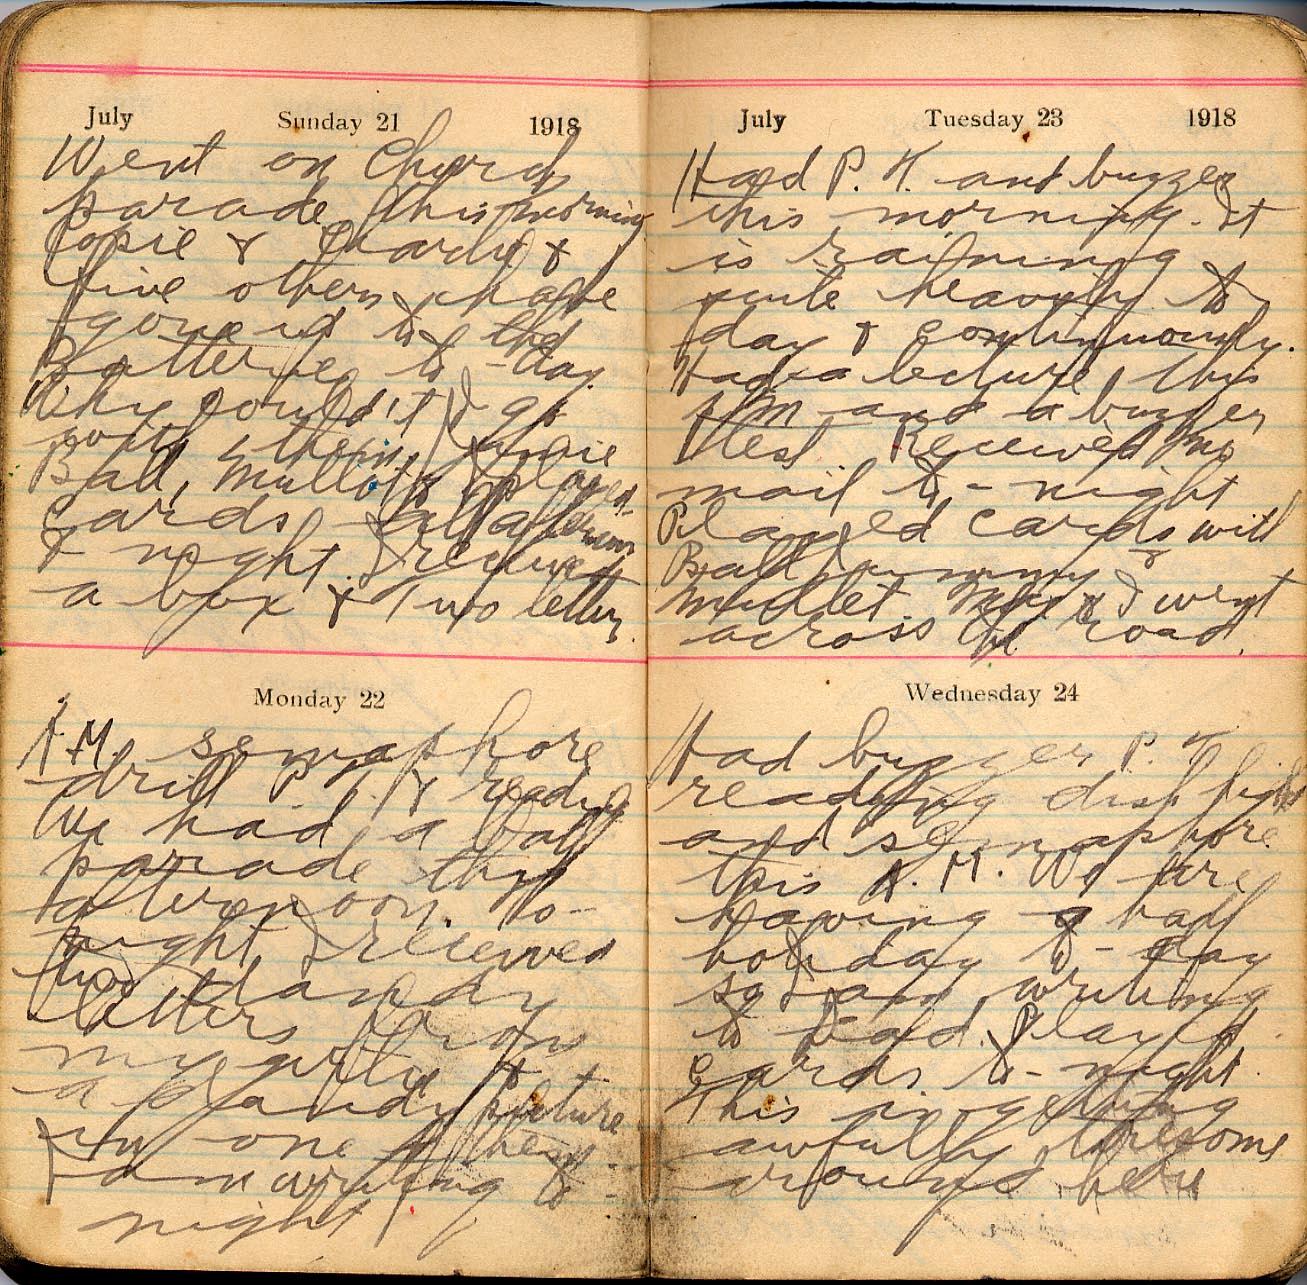 July Sunday 21 1918
Went on Church
parade this morning
Copie & Charlie &
five others have
gone up to the
Batterie to-day
Why couldn't I go
with them. Jimmie
Ball, Mullett & I played
cards all afternoon
& night. I received
a box & Two letters.
Monday 22
A.M. semaphore
drill P.T. & reading
We had a bath
parade this
afternoon. To-
night I received
two dandy
letters from
my girlie &
a dandy picture
in one of them.
I am writing to-
night
July Tuesday 23 1918
Had P.T. and buzzer
this morning. It
is raining
quite heavily to
day & continuously.
Had a lecture this
AM and a buzzer
test. Received no
mail to-night
Played cards with
Ball Jimmy &
Mullet. & I went
across the road.
Wednesday 24
Had buzzer P.T
reading disk
and semaphore
this A.M. We are
having a half
holiday to-day
so I am writing
to Dad. Played
cards to-night.
This is getting
awfully tiresome
around here